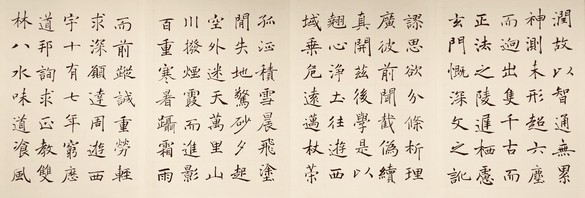 潤故以智通無累
神測未形超六塵
而迥出隻千古而
正法之陵遲栖慮
玄門慨深文之訛
謬思欲分條析理
廣彼前聞截偽續
真開茲後學是以
翹心淨土往遊西
域乗危遠邁杖策
孤征積雪晨飛塗
閒失地驚砂夕起
空外迷天萬里山
川撥煙霞而進影
百重寒暑躡霜雨
而前蹤誠重勞輕
求深願達周遊西
宇十有七年窮歷
道邦詢求正教雙
林八水味道飡風